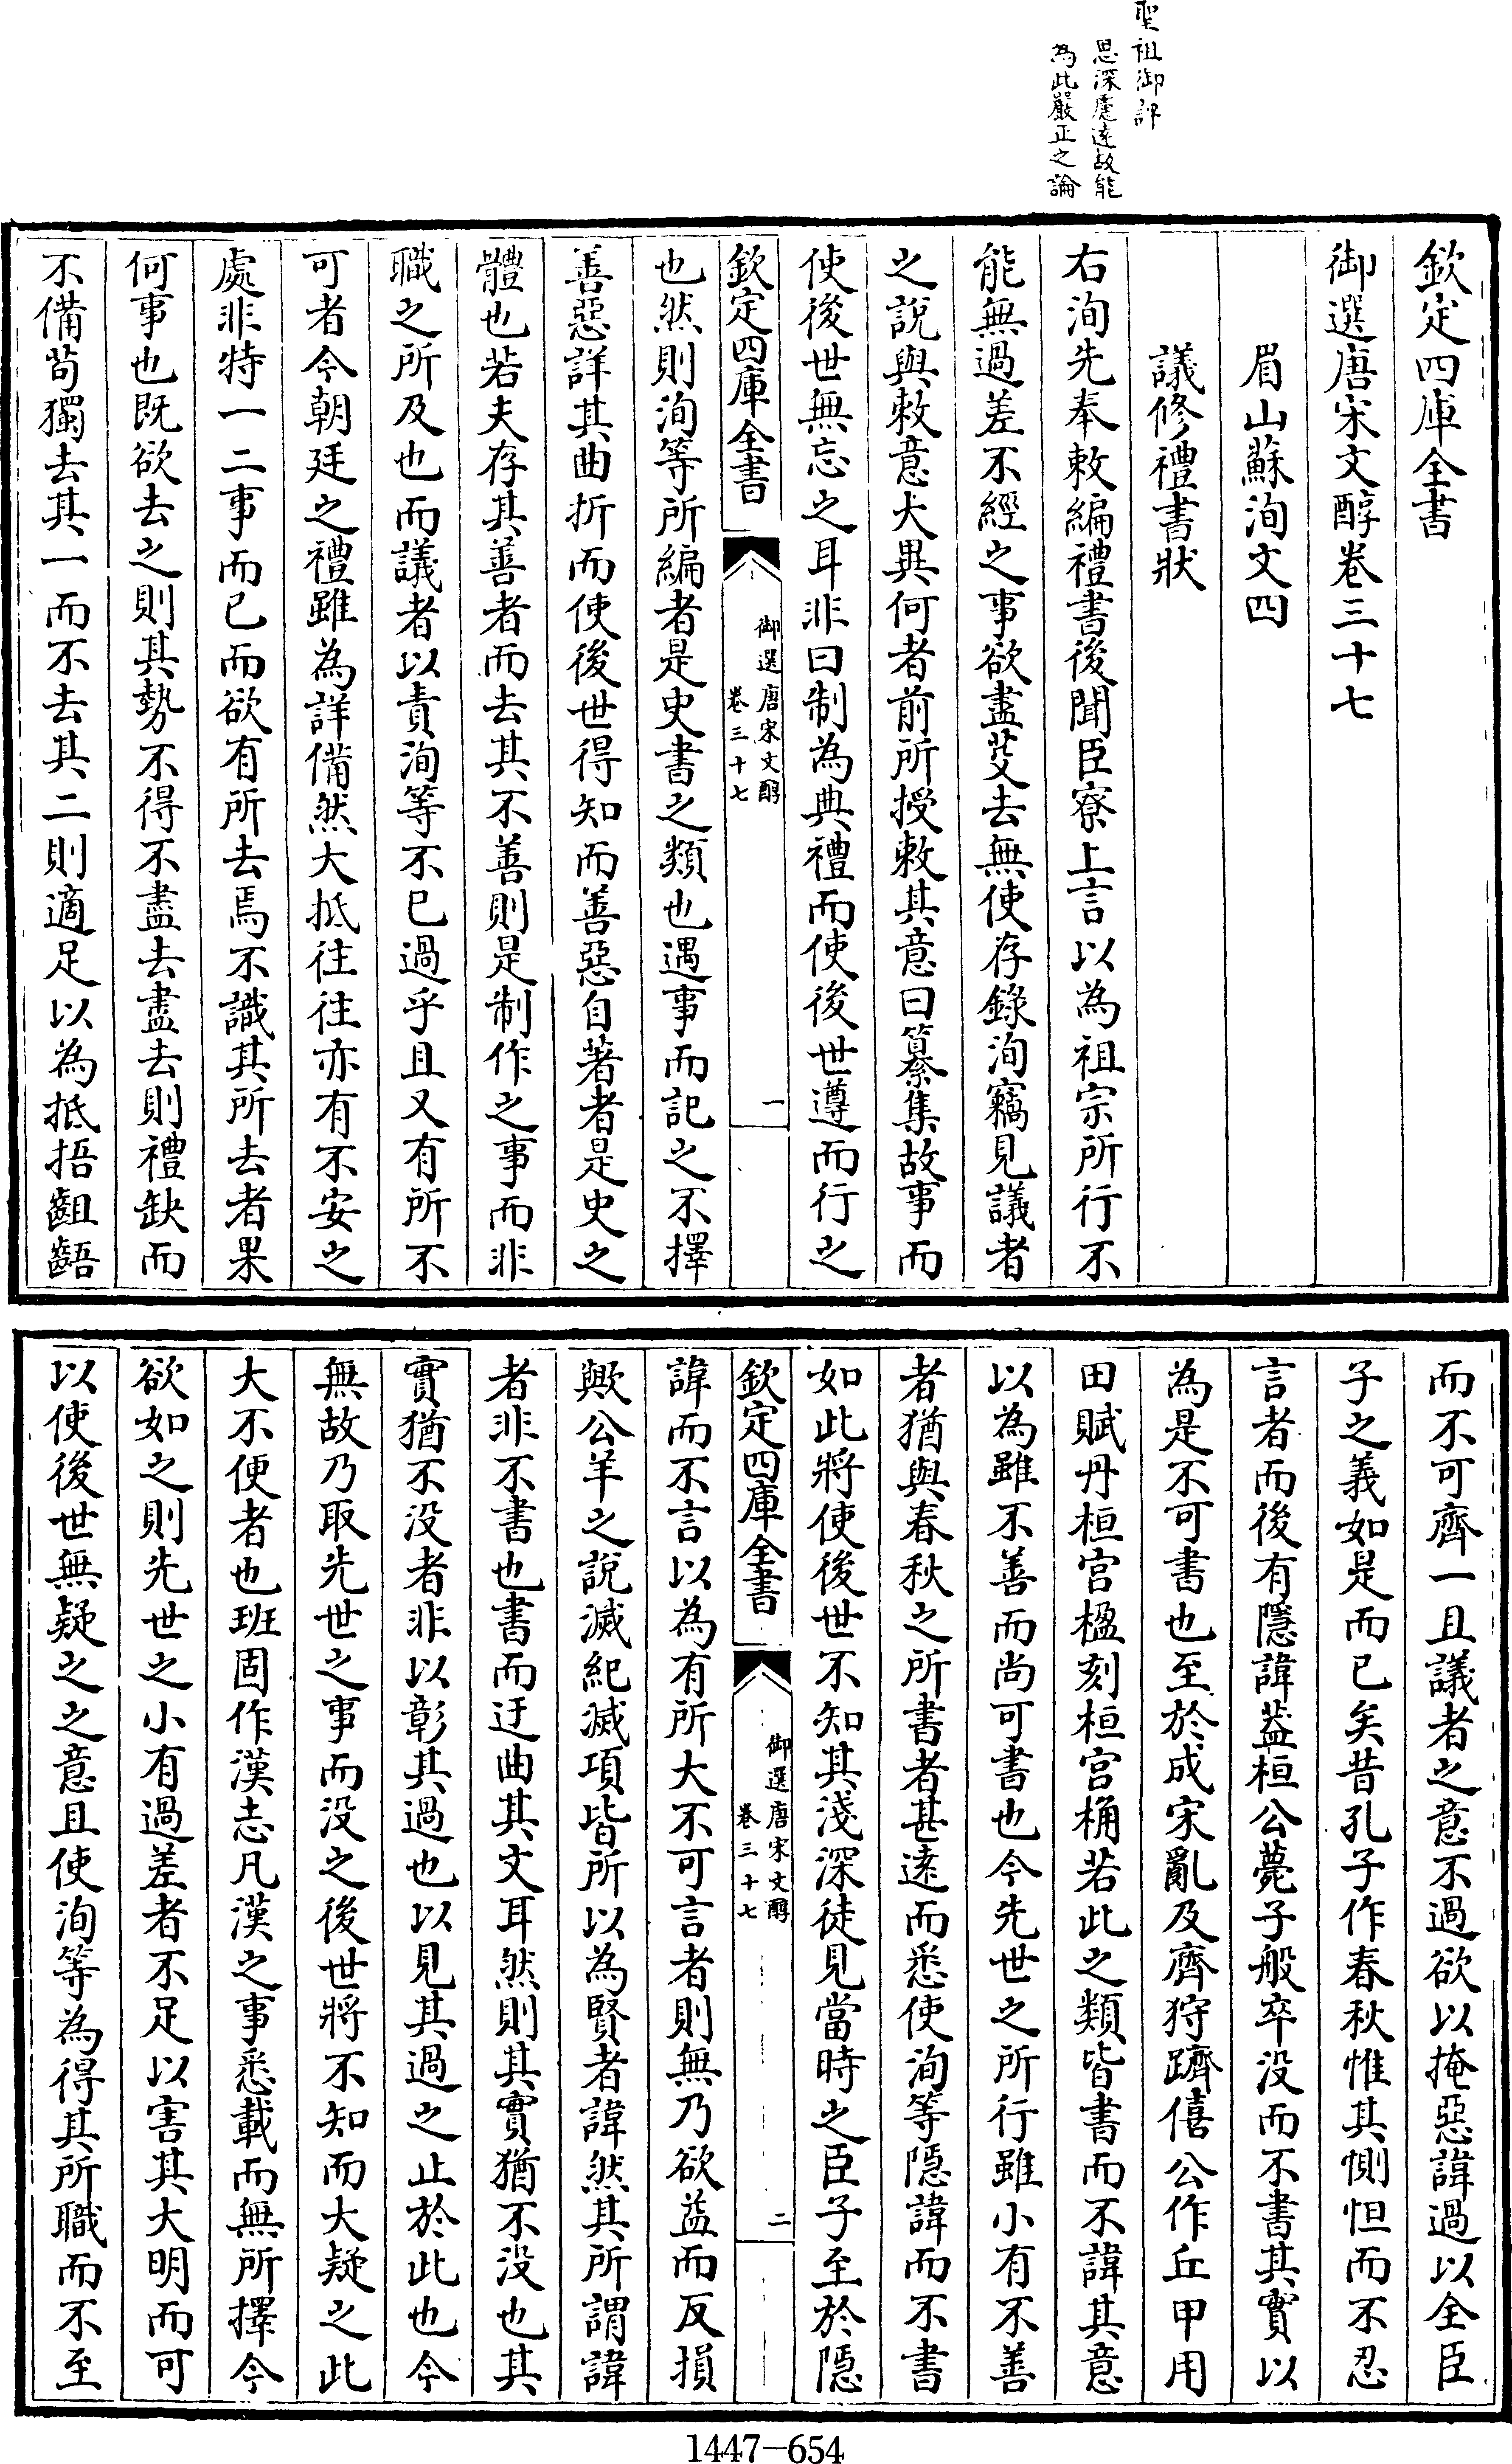 聖祖御評
思深慮遠故能
為此嚴正之論
欽定四庫全書
御選唐宋文醇卷三十七
眉山蘇洵文四
議修禮書狀
右洵先奉敕編禮書後聞臣寮上言以為祖宗所行不
能無過差不經之事欲盡芟去無使存錄洵竊見議者
之說與敕意大異何者前所授敕其意曰纂集故事而
使後世無忘之耳非曰制為典禮而使後世遵而行之
欽定四庫全書
御選唐宋文醇
卷三十七
一
也然則洵等所編者是史書之類也遇事而記之不擇
善惡詳其曲折而使後世得知而善惡自著者是史之
體也若夫存其善者而去其不善則是制作之事而非
職之所及也而議者以責洵等不已過乎且又有所不
可者今朝廷之禮雖為詳備然大抵往往亦有不安之
處非特一二事而已而欲有所去焉不識其所去者果
何事也既欲去之則其勢不得不盡去盡去則禮缺而
不備苟獨去其一而不去其二則適足以為抵捂齟齬
而不可齊一且議者之意不過欲以掩惡諱過以全臣
子之義如是而已矣昔孔子作春秋惟其惻怛而不忍
言者而後有隱諱葢桓公薨子般卒没而不書其實以
為是不可書也至於成宋亂及齊狩躋僖公作丘甲用
田賦丹桓宫楹刻桓宫桷若此之類皆書而不諱其意
以為雖不善而尚可書也今先世之所行雖小有不善
者猶與春秋之所書者甚遠而悉使洵等隱諱而不書
如此將使後世不知其淺深徒見當時之臣子至於隱
欽定四庫全書
御選唐宋文醇
卷三十七
二
諱而不言以為有所大不可言者則無乃欲益而反損
歟公羊之說滅紀滅項皆所以為賢者諱然其所謂諱
者非不書也書而迂曲其文耳然則其實猶不没也其
實猶不没者非以彰其過也以見其過之止於此也今
無故乃取先世之事而没之後世將不知而大疑之此
大不便者也班固作漢志凡漢之事悉載而無所擇今
欲如之則先世之小有過差者不足以害其大明而可
以使後世無疑之之意且使洵等為得其所職而不至
1447-654